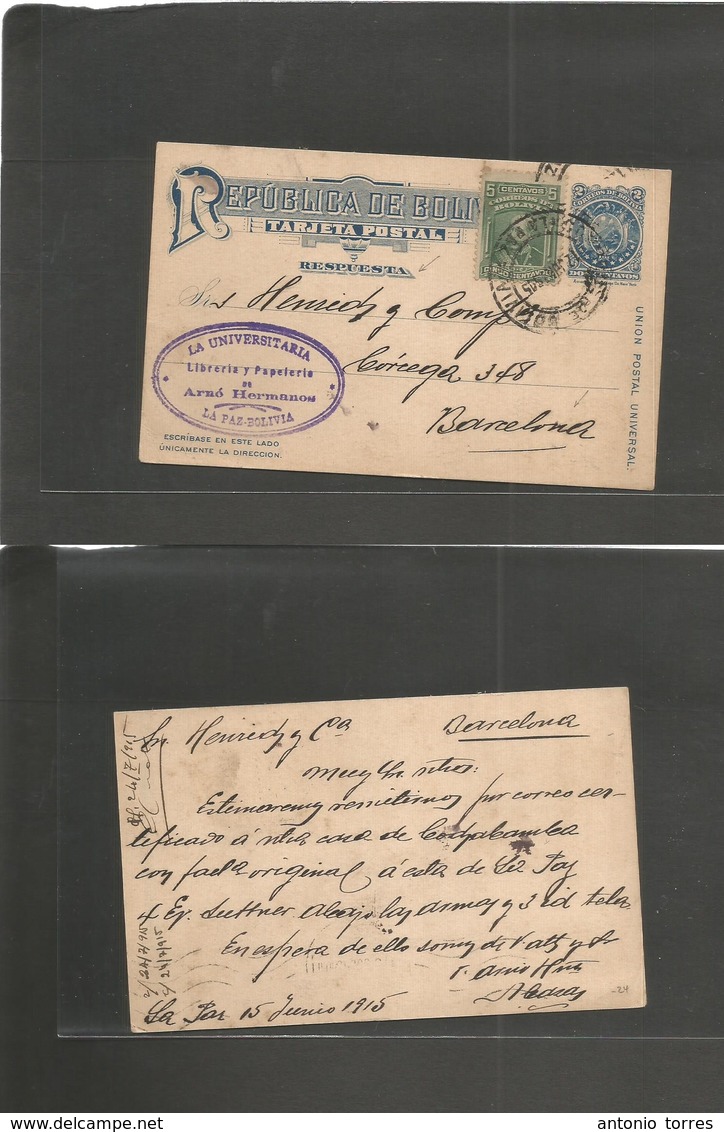 REPÚBLICA DE BOLIV
TARJETA POSTAL
RESPUESTA
5 CENTAVOS 5
CORREOS DE
BOLIVIA
2 CORREOS DE BOLIVIA 2
DOS CENTAVOS
Henrich y Comp
Córcega 348
Barcelona
LA UNIVERSITARIA
Libreria y Papeleria
DE
Arnó Hermanos
LA PAZ-BOLIVIA
ESCRÍBASE EN ESTE LADO
ÚNICAMENTE LA DIRECCION.
UNION POSTAL UNIVERSAL.
24/7/915
Sr. Henrich y Cª Barcelona
Muy Sr. ntros:
Estimaremos remitirnos por correo cer-
tificado á ntra casa de Cochabamba
con fact original á esta de La Paz
4 Ej. Suttner Abajo las armas y 3 id tela
En espera de ello somos de V atty y S
Arnó Hnos
La Paz 15 Junio 1915
24/7/915
24/7/915
-24
antonio torres